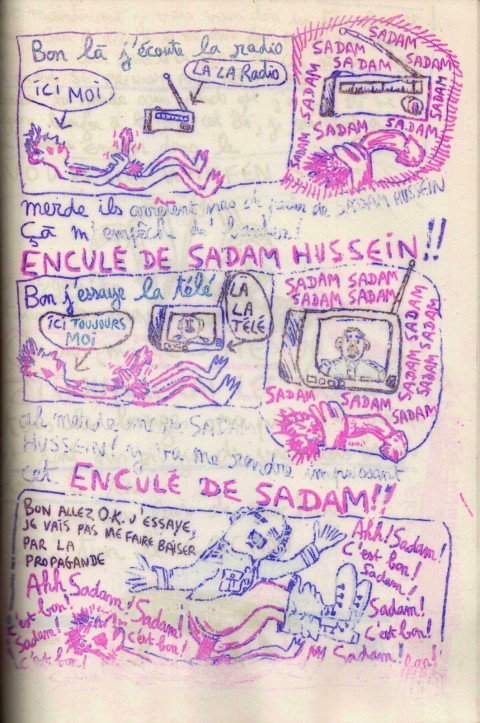 Bon là j'écoute la radio
LA LA Radio
ici MOI
SADAM
SADAM SADAM
SADAM SADAM
SADAM
SADAM
SADAM
SADAM
SADAM
SADAM
merde ils arrêtent pas de parler de SADAM HUSSEIN
Çà m'empêche de bander!
ENCULÉ DE SADAM HUSSEIN!!
Bon j'essaye la télé
LA
LA
TÉLÉ
ici TOUJOURS
MOI
SADAM SADAM
SADAM SADAM
SADAM
SADAM
SADAM
SADAM
SADAM
SADAM
SADAM
ah merde SADAM
HUSSEIN! y va me rendre impuissant
cet ENCULÉ DE SADAM!!
BON ALLEZ O.K. J'ESSAYE,
JE VAIS PAS ME FAIRE BAISER
PAR LA
PROPAGANDE
Ahh! Sadam!
C'est bon!
Sadam!
Sadam!
C'est bon!
Sadam!
Ahh! Sadam!
c'est bon!
Sadam!
c'est bon!
Sadam!
c'est bon!